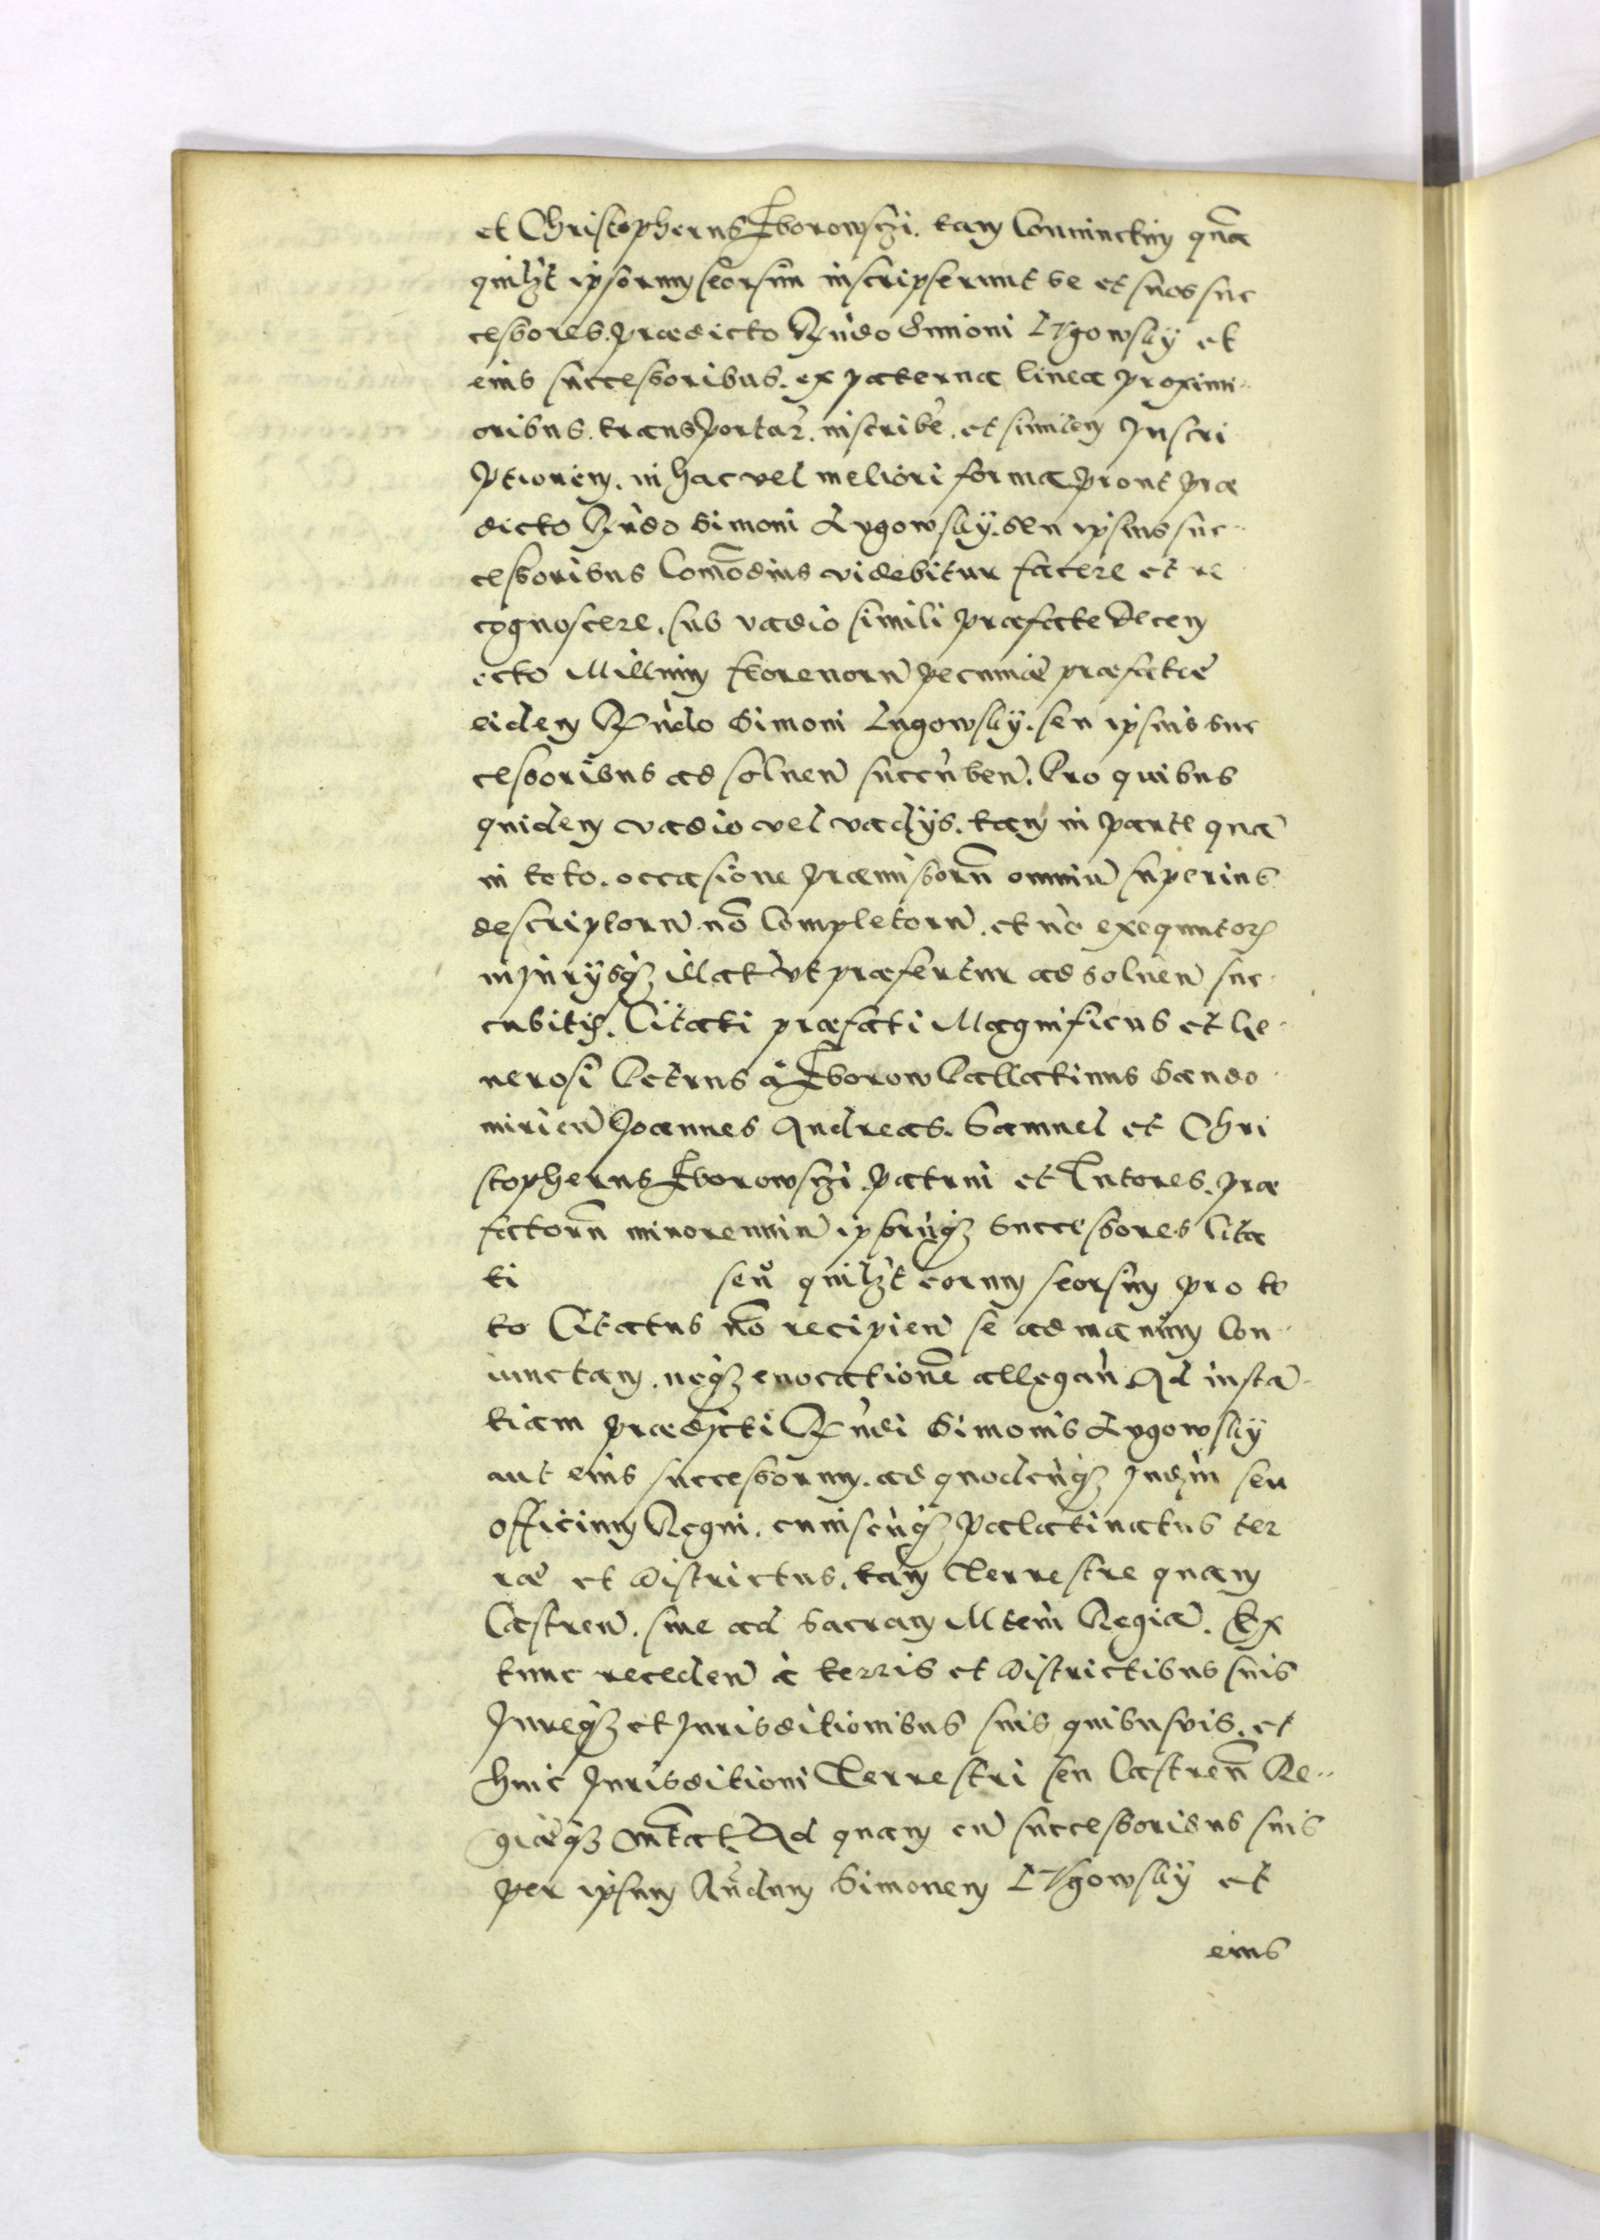 et Christopherus Zborowsczi. tam Coniunctim quā
quilzt ipsorum seorsim inscripserunt se et suos suc
cessores. prædicto Rndo Simoni Lvgowsky et
eius successoribus. ex paterna linea proximi-
oribus. transportar̃. inscribẽ. et similem Inscri
ptionem. in hac vel meliori forma prout præ
dicto Rndo Simoni Lugowsky. seu ipsius suc-
cessoribus Com̃odius videbitur facere et re
cognoscere. sub vadio simili præfate Decem
octo Millium florenorũ pecuniæ præfatæ
eidem Rndo Simoni Lugowsky. seu ipsius suc
cessoribus ad soluenñ succũbenñ. Pro quibus
quidem vadio vel vadijs. tam in parte quã
in toto. occasione præmissorũ omniũ superius
descriptorũ nõ Completorũ. et nõ exequutorz
iniurijsqz illat̃ vt præfertur ad soluenñ suc-
cubitis. Citati præfati Magnificus et Ge-
nerosi Petrus à Zborow Pallatinus Sando-
miriẽn Joannes Andreas. Samuel et Chri
stopherus Zborowsczi. patrui et Tutores. præ
fatorũ minorenniũ ipsorũqz Successores Cita
ti seu quilzt eorum seorsim pro to
to Citatus nõ recipienñ se ad manum Con-
iunctam. neqz euocationẽ allegañ Ad instã-
tiam prædicti Rndi Simonis Lugowsky
aut eius successorum. ad quodcũqz Judm̃ seu
officium Regni. cuiuscũqz Palatinatus ter
ræ et districtus. tam Terrestre quam
Castrenñ. siue ad Sacram Mtem̃ Regiã. Ex
tunc recedenñ à terris et districtibus suis
Jureqz et Jurisditionibus suis quibusvis. et
huic Jurisditioni Terrestri seu Castrenñ Re-
giæqz Mtat̃ Ad quam cũ successoribus suis
per ipsum Rndum Simonem Lvgowsky et
eius